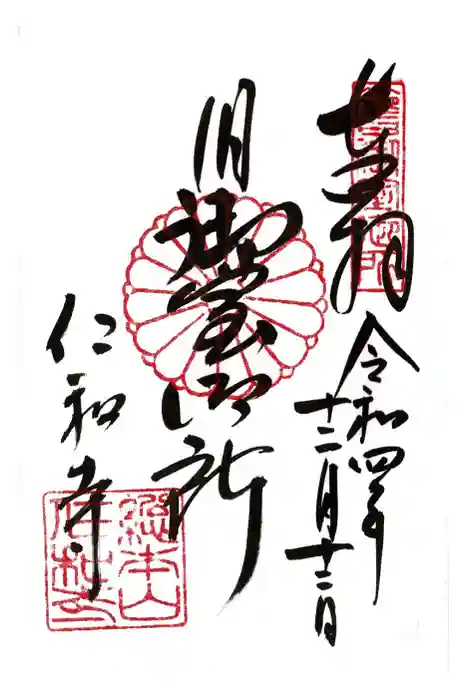 奉拝
令和四年
十二月十二日
旧御室御所
仁和寺
總本山
仁和寺